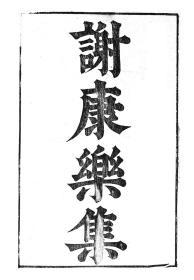 謝康樂集